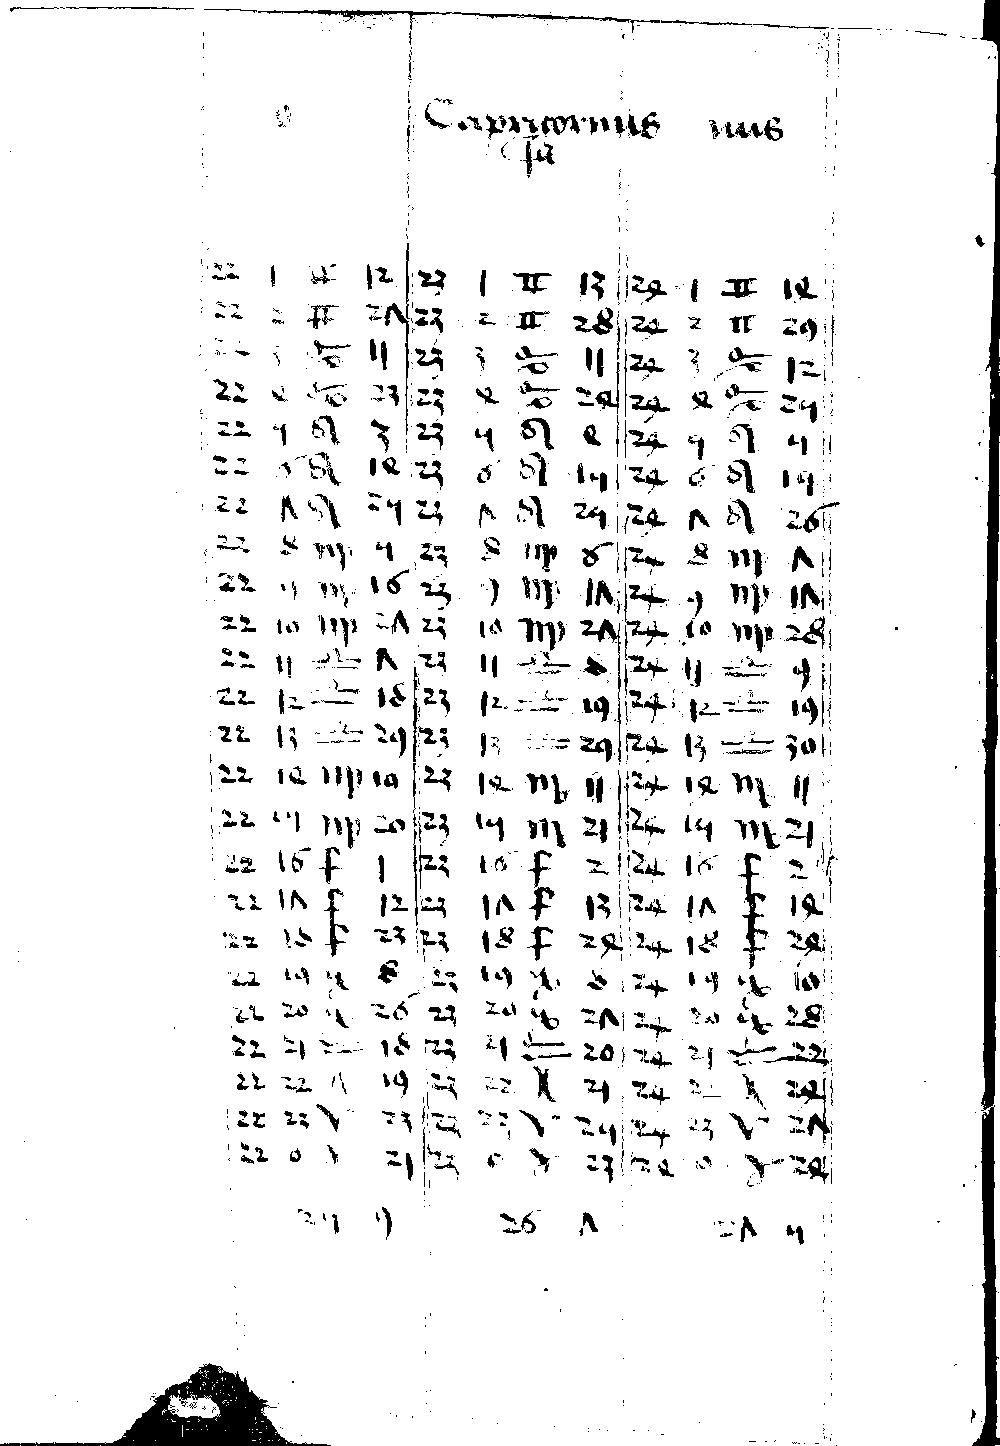 Capricornus nus
22 1 ♊ 12 23 1 ♊ 13 24 1 ♊ 14
22 2 ♊ 27 23 2 ♊ 28 24 2 ♊ 29
3 ♋ 11 23 3 ♋ 11 24 3 ♋ 12
22 4 ♋ 23 23 4 ♋ 24 24 4 ♋ 25
22 5 ♌ 3 23 5 ♌ 4 24 5 ♌ 5
22 6 ♌ 14 23 6 ♌ 15 24 6 ♌ 15
22 7 ♌ 25 23 7 ♌ 25 24 7 ♌ 26
22 8 ♍ 5 23 8 ♍ 6 24 8 ♍ 7
22 9 ♍ 16 23 9 ♍ 17 24 9 ♍ 17
22 10 ♍ 27 23 10 ♍ 27 24 10 ♍ 28
22 11 ♎ 7 23 11 ♎ 8 24 11 ♎ 9
22 12 ♎ 18 23 12 ♎ 19 24 12 ♎ 19
22 13 ♎ 29 23 13 ♎ 29 24 13 ♎ 30
22 14 ♍ 10 23 14 ♏ 11 24 14 ♏ 11
22 15 ♍ 20 23 15 ♏ 21 24 15 ♏ 21
22 16 ♐ 1 23 16 ♐ 2 24 16 ♐ 2
22 17 ♐ 12 23 17 ♐ 13 24 17 ♐ 14
22 18 ♐ 23 23 18 ♐ 24 24 18 ♐ 24
22 19 ♑ 8 23 19 ♑ 8 24 19 ♑ 10
22 20 ♑ 26 23 20 ♑ 27 24 20 ♑ 28
22 21 ♒ 18 23 21 ♒ 20 24 21 ♒ 22
22 22 ♓ 19 23 22 ♓ 21 24 22 ♓ 24
22 23 ♈ 23 23 23 ♈ 25 24 23 ♈ 27
22 0 ♉ 21 23 0 ♉ 23 24 0 ♉ 24
25 9 26 7 27 5